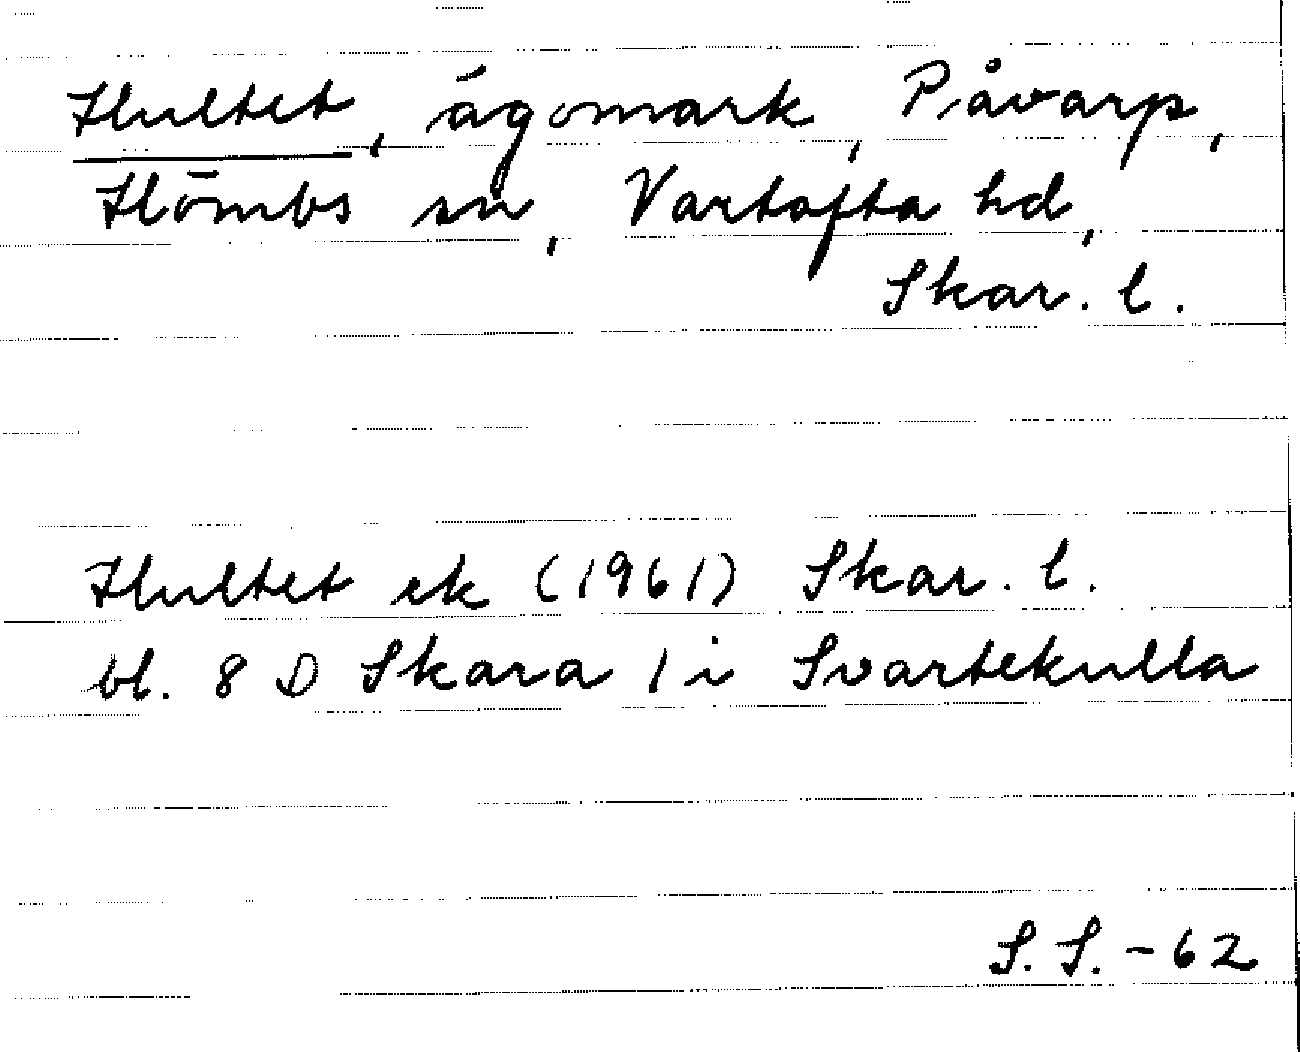 Hultet, ägomark, Påvarp,
Hömbs sn, Vartofta hd,
Skar. l.
Hultet ek (1961) Skar. l.
bl. 8 D Skara 1 i Svartekulla
S. S. - 62